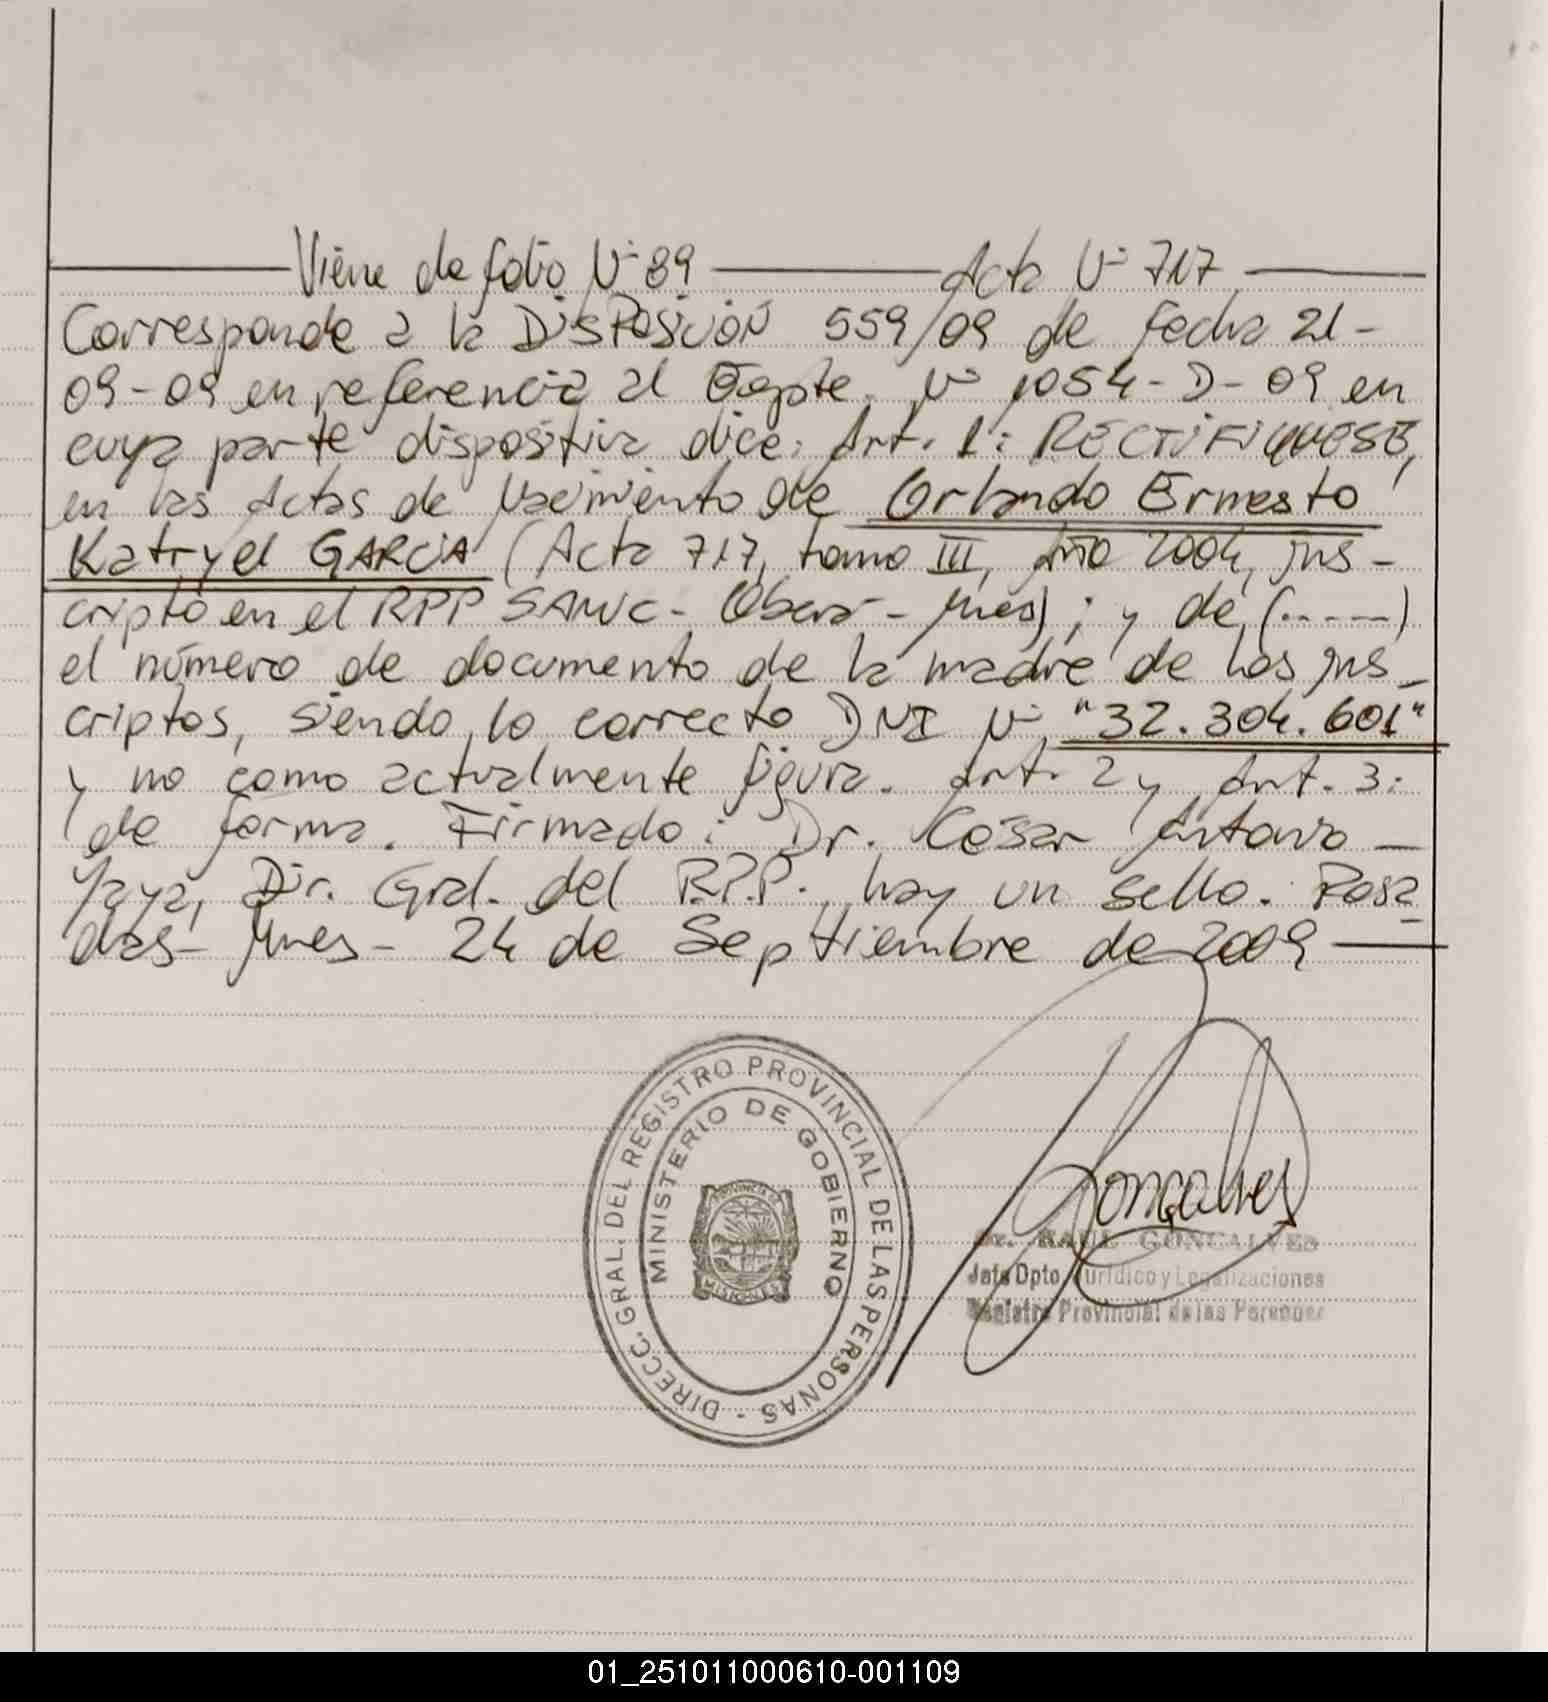 Viene de folio Nº 89 — Acta Nº 717 —
Corresponde a la DISPOSICIÓN 559/09 de fecha 21-
09-09 en referencia al Expte. Nº 1054-D-09 en
cuya parte dispositiva dice: Art. 1: RECTIFIQUESE,
en las Actas de Nacimiento de Orlando Ernesto
Katryel GARCIA (Acta 717, tomo III, Año 2004, ins-
cripto en el RPP SAMIC - Oberá - Mnes); y de (.....)
el número de documento de la madre de los ins-
criptos, siendo lo correcto DNI Nº "32.304.601"
y no como actualmente figura. Art. 2 y Art. 3:
de forma. Firmado: Dr. César Antonio —
Yaya, Dir. Gral. del R.P.P. hay un sello. Posa
das - Mnes - 24 de Septiembre de 2009 —
DIRECC. GRAL. DEL REGISTRO PROVINCIAL DE LAS PERSONAS -
MINISTERIO DE GOBIERNO
PROVINCIA DE
MISIONES
Gonçalves
Dr. RAUL GONCALVES
Jefe Dpto. Jurídico y Legalizaciones
Registro Provincial de las Personas
01_251011000610-001109